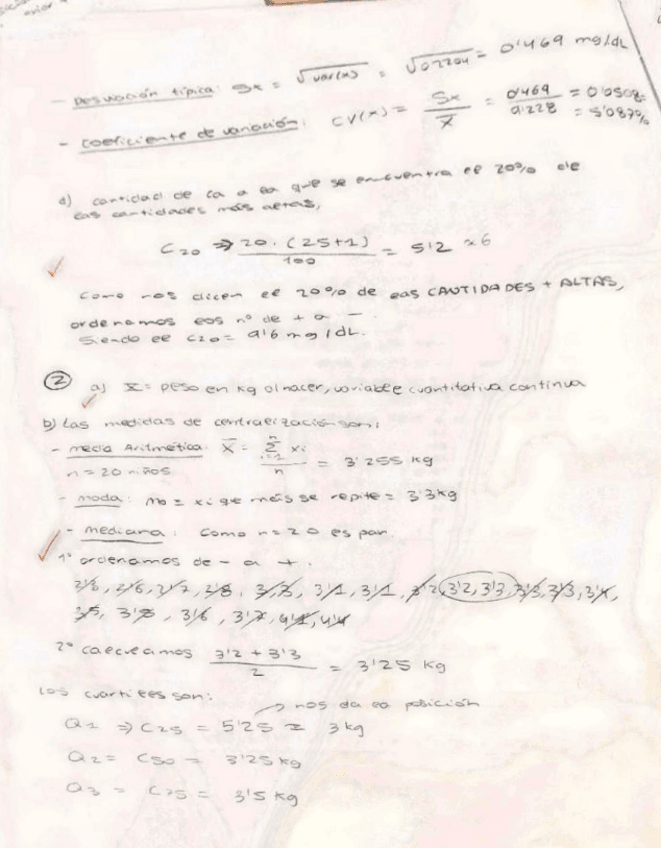 - Desviación típica: Sx = √var(x) = √0'2204 = 0'469 mg/dL
- coeficiente de variación: CV(x) = Sx / x̄ = 0'469 / 9'228 = 0'0508 = 5'087%
d) cantidad de ca a la que se encuentra el 20% de
las cantidades más altas,
C20 ⇒ 20 · (25+1) / 100 = 5'2 ≈ 6
como nos dicen el 20% de las CANTIDADES + ALTAS,
ordenamos los nº de + a -
siendo el C20 = 9'6 mg/dL.
② a) X = peso en kg al nacer, variable cuantitativa continua
b) Las medidas de centralización son:
- media Aritmética: X̄ = Σ xi / n = 3'255 kg
n = 20 niños
- moda: Mo = xi que más se repite = 3'3kg
- mediana: como n=20 es par.
1º ordenamos de - a +.
3'1, 3'1, 3'2, 3'2, 3'3, 3'3, 3'3
3'5, 3'6, 3'7
2º calculamos 3'2 + 3'3 / 2 = 3'25 kg
Los cuartiles son:
nos da la posición
Q1 ⇒ C25 = 5'25 = 3kg
Q2 = C50 = 3'25kg
Q3 = C75 = 3'5 kg